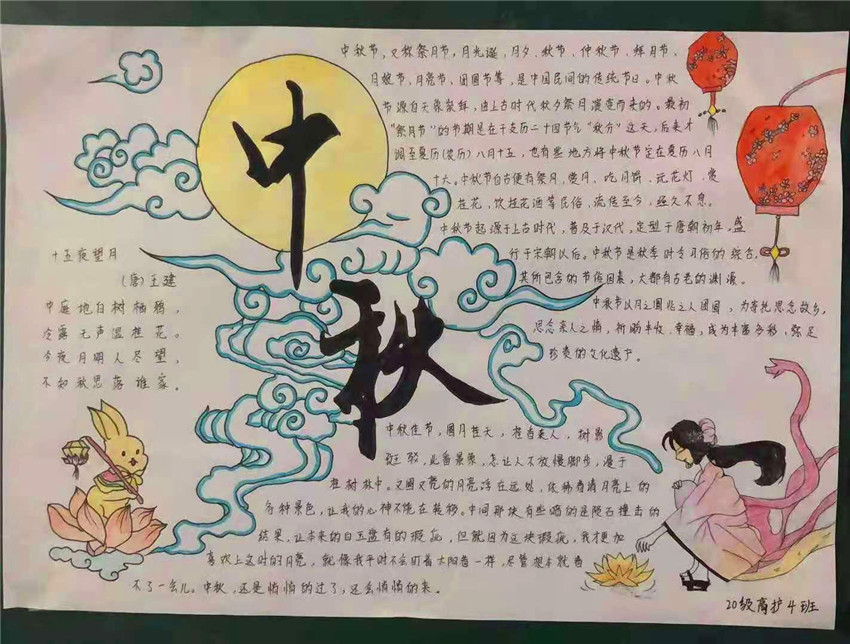 中秋
中秋节，又称祭月节、月光诞、月夕、秋节、仲秋节、拜月节、
月娘节、月亮节、团圆节等，是中国民间的传统节日。中秋
节源自天象崇拜，由上古时代秋夕祭月演变而来的。最初
“祭月节”的节期是在干支历二十四节气“秋分”这天，后来才
调至夏历(农历)八月十五，也有些地方将中秋节定在夏历八月
十六。中秋节自古便有祭月、赏月、吃月饼、玩花灯、赏
桂花、饮桂花酒等民俗，流传至今，经久不息。
中秋节起源于上古时代，普及于汉代，定型于唐朝初年，盛
行于宋朝以后。中秋节是秋季时令习俗的综合，
其所包含的节俗因素，大都有古老的渊源。
中秋节以月之圆兆人之团圆，为寄托思念故乡，
思念亲人之情，祈盼丰收、幸福，成为丰富多彩、弥足
珍贵的文化遗产。
十五夜望月
(唐)王建
中庭地白树栖鸦，
冷露无声湿桂花。
今夜月明人尽望，
不知秋思落谁家。
中秋佳节，圆月挂天，桂香袭人，树影
斑驳，此番景象，怎让人不放慢脚步，漫于
桂树林中。又圆又亮的月亮浮在远处，依稀看清月亮上的
各种景色，让我的心神不能在转移。中间那块有些暗的是陨石撞击的
结果，让本来的白玉盘有的瑕疵，但就因为这块瑕疵，我才更加
喜欢上这时的月亮，就像我平时不会盯着太阳看一样，尽管想未就看
不了一会儿。中秋，还是悄悄的过了，还会悄悄的来。
20级高护4班